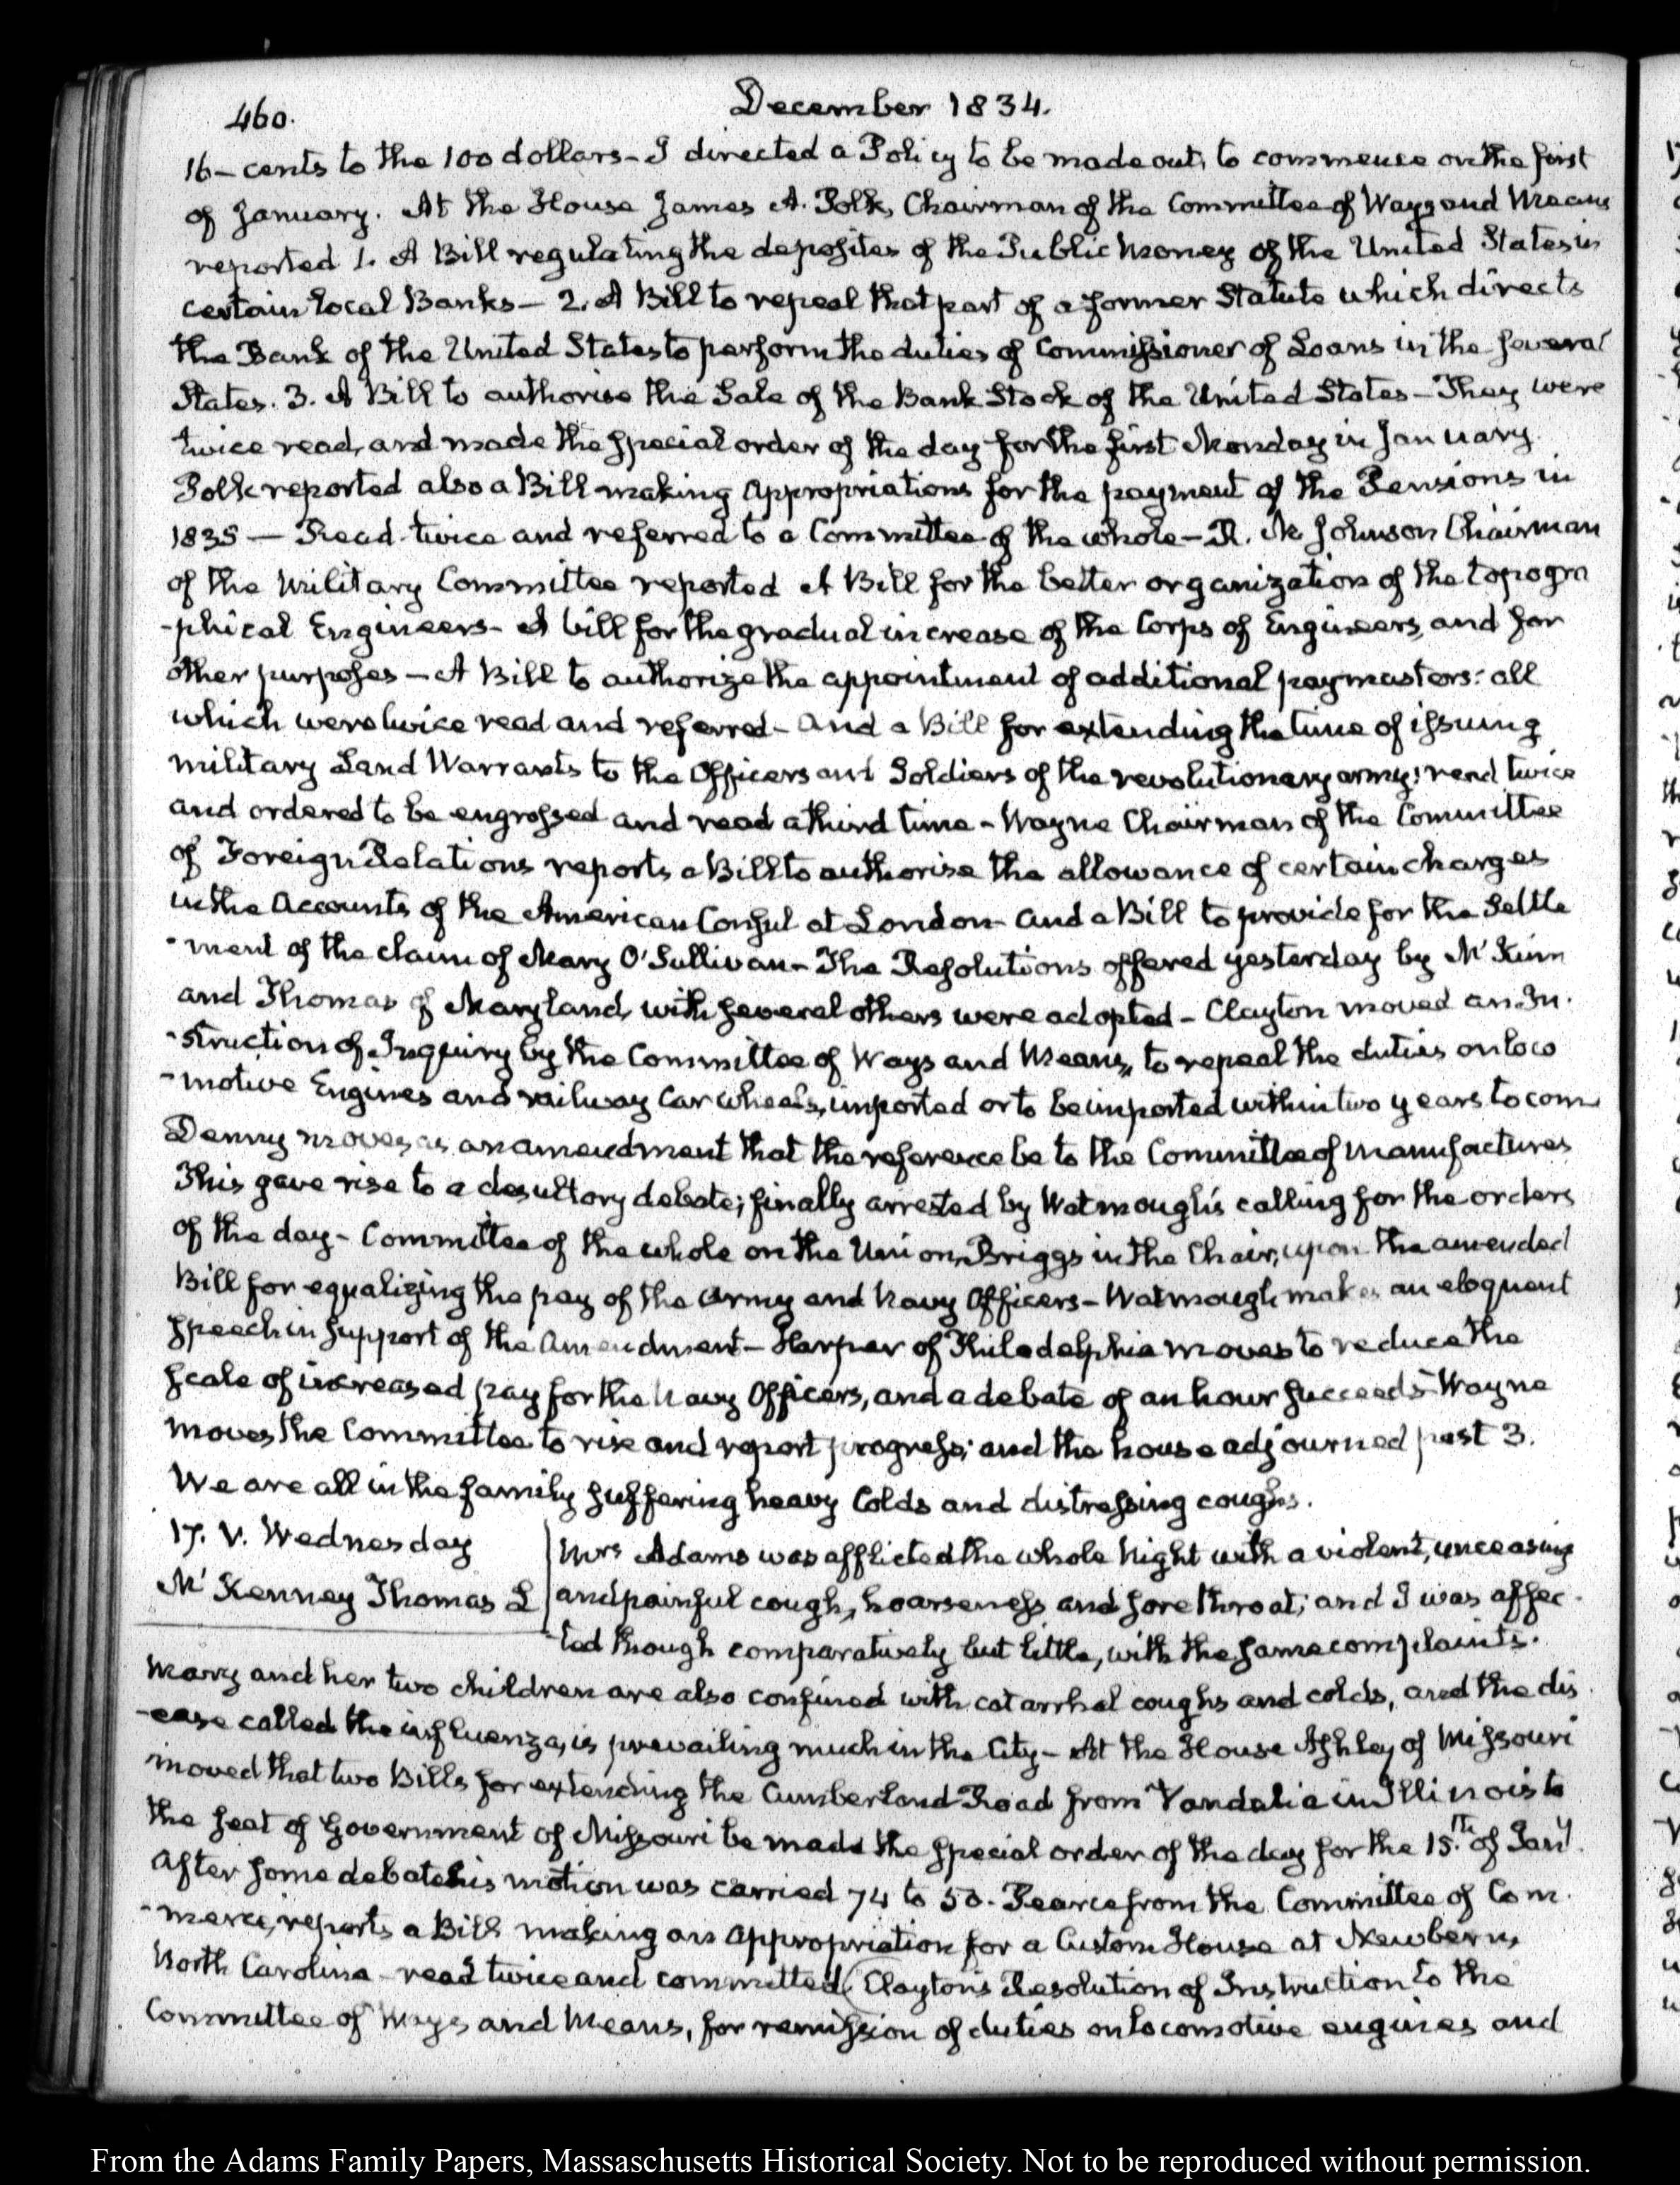 460.
December 1834.
16 – cents to the 100 dollars – I directed a Policy to be made out, to commence on the first
of January. At the House James A. Polk, Chairman of the Committee of Ways and Means
reported 1. A Bill regulating the deposites of the Public Money of the United States in
certain local Banks – 2. A Bill to repeal that part of a former Statute which directs
the Bank of the United States to perform the duties of Commissioner of Loans in the several
States. 3. A Bill to authorise the Sale of the Bank Stock of the United States – They were
twice read, and made the special order of the day for the first Monday in January.
Polk reported also a Bill making Appropriations for the payment of the Pensions in
1835 — Read twice and referred to a Committee of the whole – R. M. Johnson Chairman
of the Military Committee reported A Bill for the better organization of the topogra
-phical Engineers – A bill for the gradual increase of the Corps of Engineers, and for
other purposes – A Bill to authorize the appointment of additional paymasters: all
which were twice read and referred – and a Bill for extending the time of issuing
military Land Warrants to the Officers and Soldiers of the revolutionary army: read twice
and ordered to be engrossed and read a third time – Wayne Chairman of the Committee
of Foreign Relations reports a Bill to authorise the allowance of certain charges
in the Accounts of the American Consul at London and a Bill to provide for the settle
-ment of the claim of Mary O'Sullivan – The Resolutions offered yesterday by McKim
and Thomas of Maryland, with several others were adopted – Clayton moved an In-
-struction of Inquiry by the Committee of Ways and Means, to repeal the duties on loco
-motive Engines and railway Car wheels, imported or to be imported within two years to come
Denny moves, as an amendment that the reference be to the Committee of Manufactures
This gave rise to a desultory debate; finally arrested by Watmough's calling for the orders
of the day – Committee of the whole on the Union, Briggs in the Chair, upon the amended
Bill for equalizing the pay of the Army and Navy Officers – Watmough makes an eloquent
speech in support of the Amendment – Harper of Philadelphia moves to reduce the
scale of increased pay for the Navy Officers, and a debate of an hour succeeds – Wayne
moves the Committee to rise and report progress; and the house adjourned past 3.
We are all in the family suffering heavy Colds and distressing coughs.
17. V. Wednesday
McKenney Thomas L
Mrs Adams was afflicted the whole Night with a violent, unceasing
and painful cough, hoarseness and sore throat; and I was affec-
-ted though comparatively but little, with the same complaints.
Mary and her two children are also confined with catarrhal coughs and colds, and the dis
-ease called the influenza, is prevailing much in the City – At the House Ashley of Missouri
moved that two Bills for extending the Cumberland Road from Vandalia in Illinois to
the seat of Government of Missouri be made the special order of the day for the 15th. of Jany.
After some debate his motion was carried 74 to 50. Pearce from the Committee of Com-
-merce, reports a Bill making an Appropriation for a Custom House at Newbern,
North Carolina – read twice and committed (Clayton's Resolution of Instruction to the
Committee of Ways and Means, for remission of duties on locomotive engines and
From the Adams Family Papers, Massaschusetts Historical Society. Not to be reproduced without permission.